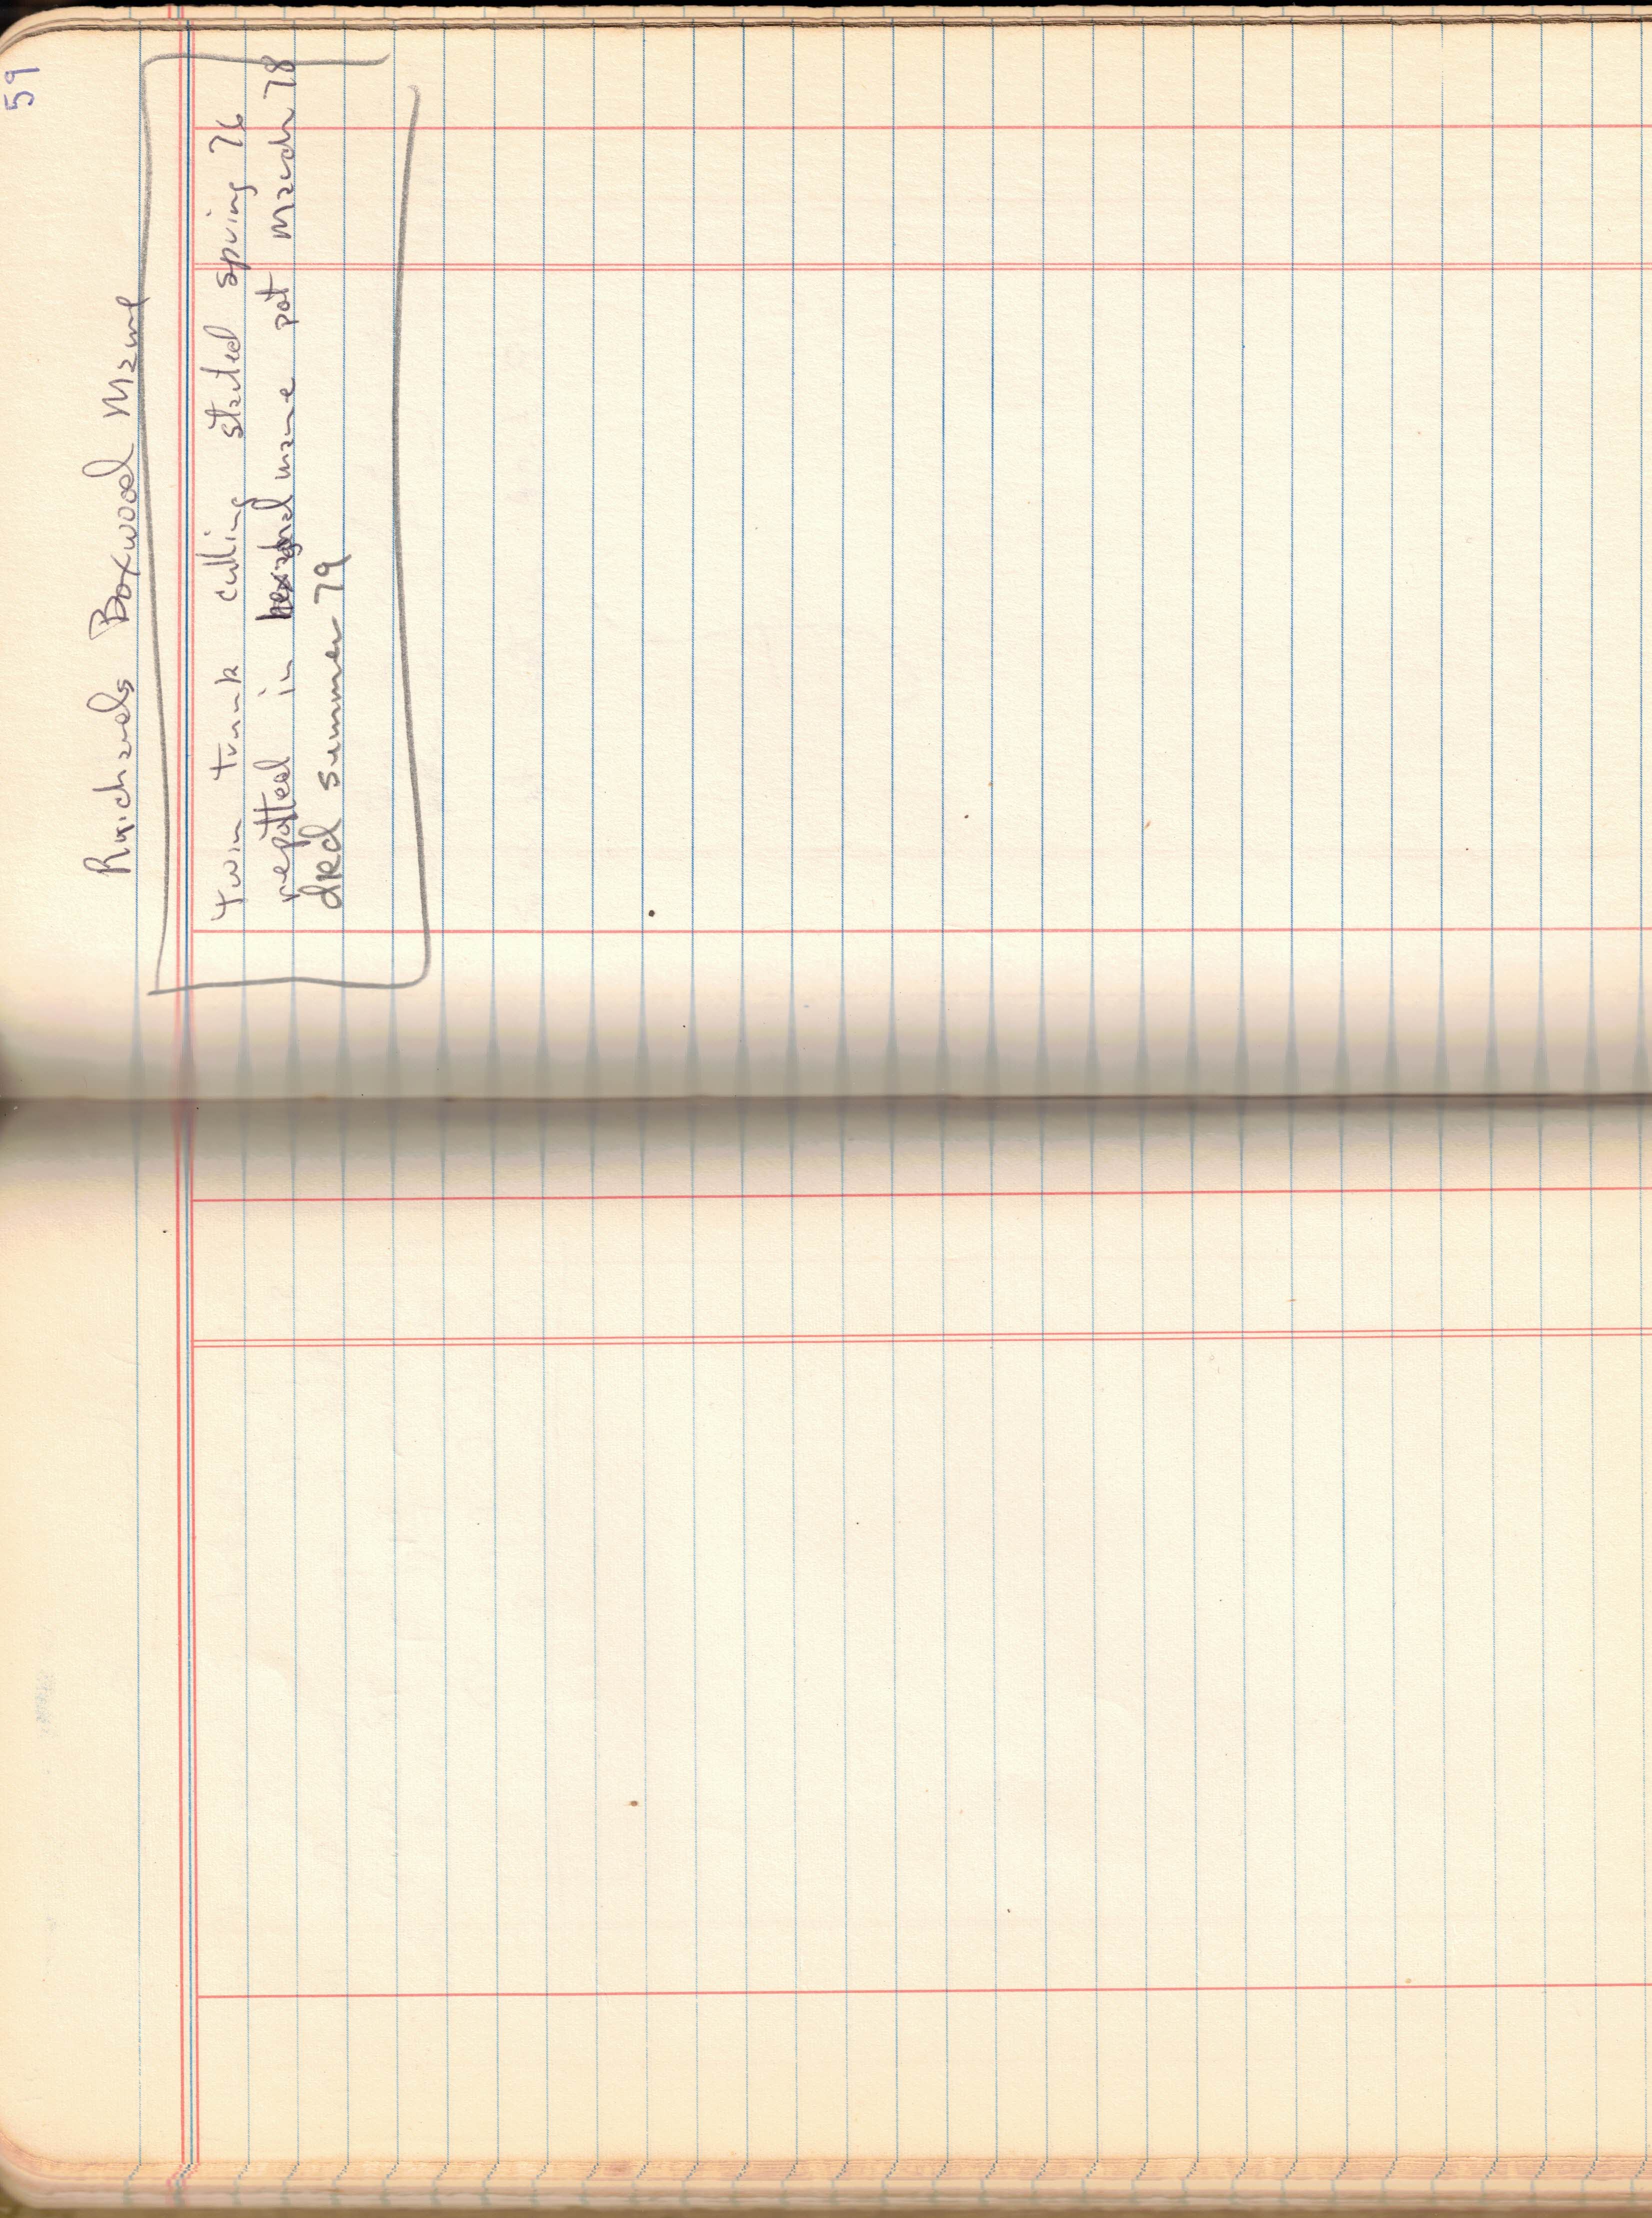 59
Richards Boxwood Mame
twin trunk cutting started spring 76
repotted in hexagonal mame pot March 78
died summer 79